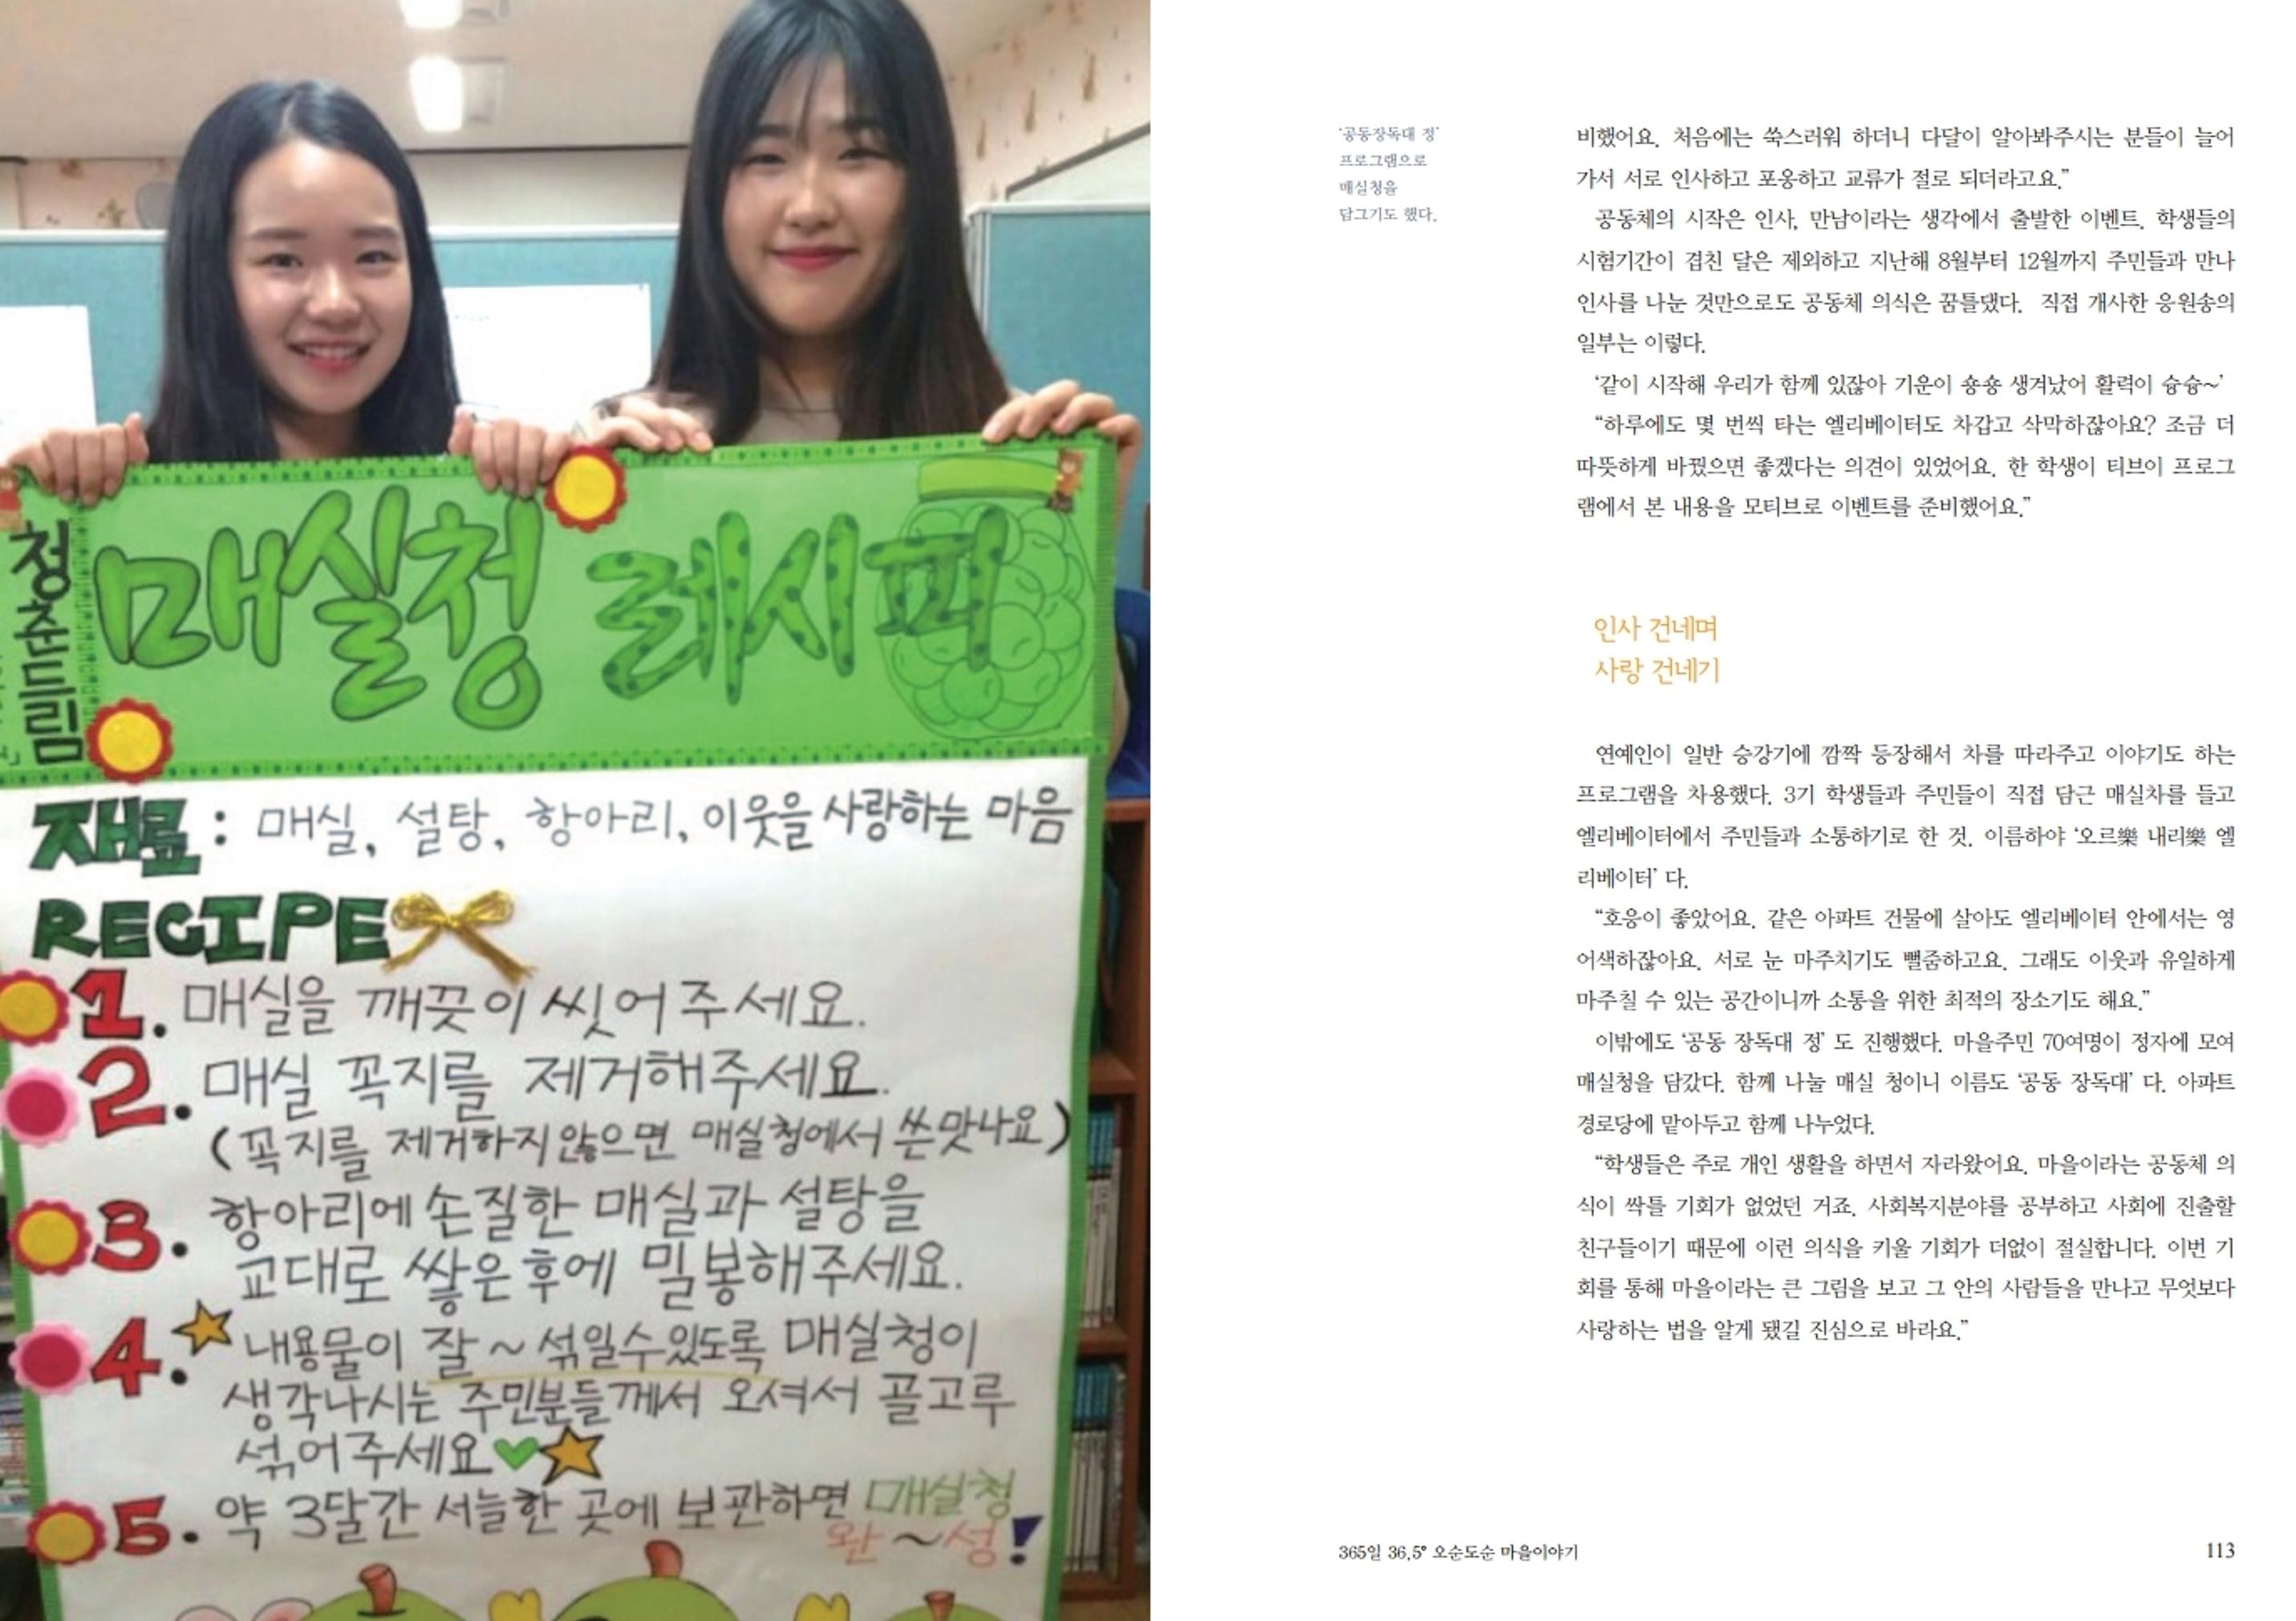 청춘드림
매실청 레시피
재료 : 매실, 설탕, 항아리, 이웃을 사랑하는 마음
RECIPE
1. 매실을 깨끗이 씻어주세요.
2. 매실 꼭지를 제거해주세요.
(꼭지를 제거하지않으면 매실청에서 쓴맛나요)
3. 항아리에 손질한 매실과 설탕을
교대로 쌓은후에 밀봉해주세요.
4. 내용물이 잘~섞일수있도록 매실청이
생각나시는 주민분들께서 오셔서 골고루
섞어주세요
5. 약 3달간 서늘한 곳에 보관하면 매실청
완~성!
‘공동장독대 정’
프로그램으로
매실청을
담그기도 했다.
비했어요. 처음에는 쑥스러워 하더니 다달이 알아봐주시는 분들이 늘어
가서 서로 인사하고 포옹하고 교류가 절로 되더라고요.”
공동체의 시작은 인사, 만남이라는 생각에서 출발한 이벤트. 학생들의
시험기간이 겹친 달은 제외하고 지난해 8월부터 12월까지 주민들과 만나
인사를 나눈 것만으로도 공동체 의식은 꿈틀댔다. 직접 개사한 응원송의
일부는 이렇다.
‘같이 시작해 우리가 함께 있잖아 기운이 숑숑 생겨났어 활력이 슝슝~’
“하루에도 몇 번씩 타는 엘리베이터도 차갑고 삭막하잖아요? 조금 더
따뜻하게 바꿨으면 좋겠다는 의견이 있었어요. 한 학생이 티브이 프로그
램에서 본 내용을 모티브로 이벤트를 준비했어요.”
인사 건네며
사랑 건네기
연예인이 일반 승강기에 깜짝 등장해서 차를 따라주고 이야기도 하는
프로그램을 차용했다. 3기 학생들과 주민들이 직접 담근 매실차를 들고
엘리베이터에서 주민들과 소통하기로 한 것. 이름하야 ‘오르樂 내리樂 엘
리베이터’ 다.
“호응이 좋았어요. 같은 아파트 건물에 살아도 엘리베이터 안에서는 영
어색하잖아요. 서로 눈 마주치기도 뻘줌하고요. 그래도 이웃과 유일하게
마주칠 수 있는 공간이니까 소통을 위한 최적의 장소기도 해요.”
이밖에도 ‘공동 장독대 정’ 도 진행했다. 마을주민 70여명이 정자에 모여
매실청을 담갔다. 함께 나눌 매실 청이니 이름도 ‘공동 장독대’ 다. 아파트
경로당에 맡아두고 함께 나누었다.
“학생들은 주로 개인 생활을 하면서 자라왔어요. 마을이라는 공동체 의
식이 싹틀 기회가 없었던 거죠. 사회복지분야를 공부하고 사회에 진출할
친구들이기 때문에 이런 의식을 키울 기회가 더없이 절실합니다. 이번 기
회를 통해 마을이라는 큰 그림을 보고 그 안의 사람들을 만나고 무엇보다
사랑하는 법을 알게 됐길 진심으로 바라요.”
365일 36.5° 오순도순 마을이야기
113